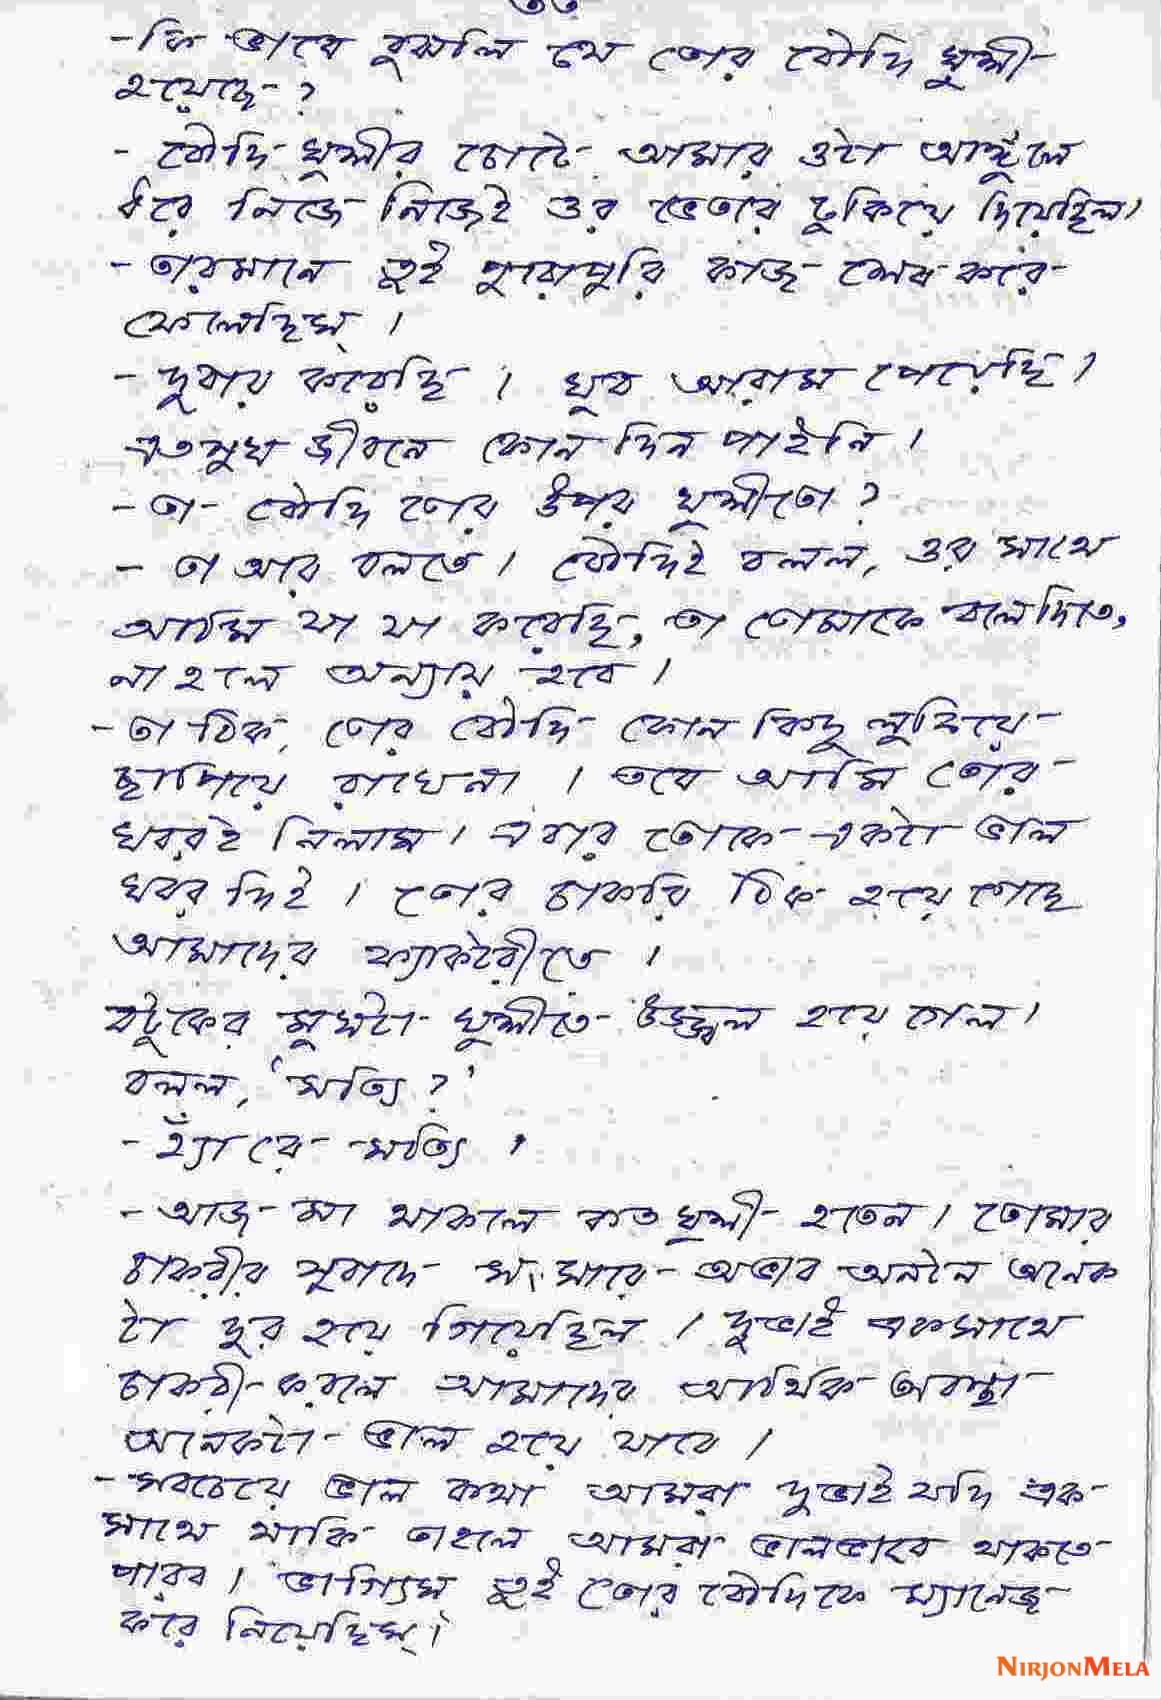 ৩৩
- কি ভাবে বুঝলি যে তোর বৌদি খুশী
হয়েছে ?
- বৌদি খুশীর চোটে আমার ওটা আঙ্গুলে
ধরে নিজে নিজেই ওর ভেতরে ঢুকিয়ে দিয়েছিল।
- তারমানে তুই পুরোপুরি কাজ শেষ করে
ফেলেছিস্ ।
- দুবার করেছি । খুব আরাম পেয়েছি ।
এত সুখ জীবনে কোন দিন পাইনি ।
- তা বৌদি তোর উপর খুশীতো ?
- তা আর বলতে । বৌদিই বলল, ওর সাথে
আমি যা যা করেছি, তা তোমাকে বলে দিতে,
না হলে অন্যায় হবে ।
- তা ঠিক, তোর বৌদি কোন কিছু লুকিয়ে
ছাপিয়ে রাখেনা । তবে আমি তোর
খবরই নিলাম । এবার তোকে একটা ভাল
খবর দিই । তোর চাকরি ঠিক হয়ে গেছে
আমাদের ফ্যাকটরীতে ।
বটুকের মুখটা খুশীতে উজ্জ্বল হয়ে গেল ।
বলল, 'সত্যি ?'
- হ্যাঁ রে সত্যি ।
- আজ মা থাকলে কত খুশী হতেন । তোমার
চাকরীর সুবাদে সংসারে অভাব অনটন অনেক
টা দূর হয়ে গিয়েছিল । দুভাই একসাথে
চাকরী করলে আমাদের আর্থিক অবস্থা
অনেকটা ভাল হয়ে যাবে ।
- সবচেয়ে ভাল কথা আমরা দুভাই যদি এক
সাথে থাকি তাহলে আমরা ভালভাবে থাকতে
পারব । ভাগ্যিস তুই তোর বৌদিকে ম্যানেজ
করে নিয়েছিস্ ।
NIRJONMELA